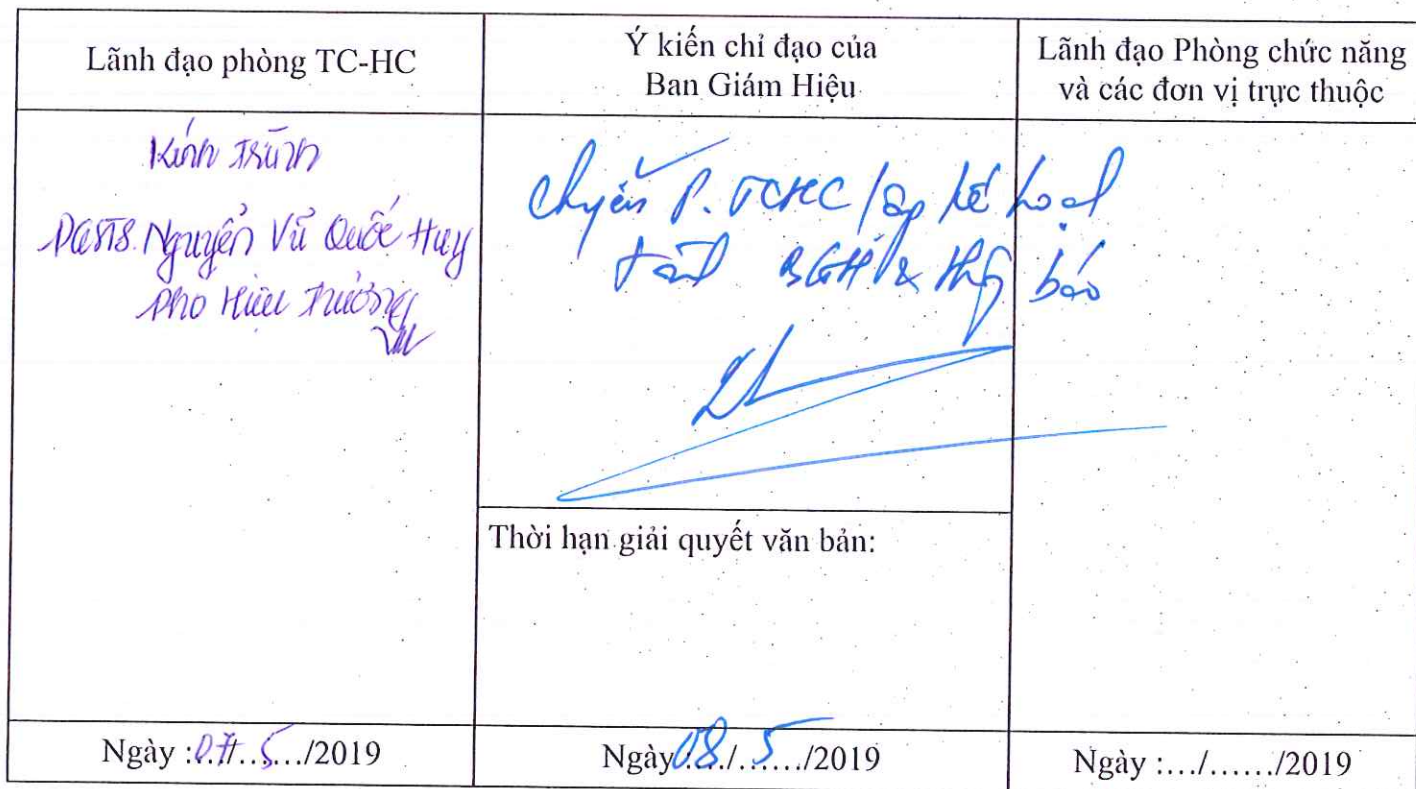 Lãnh đạo phòng TC-HC
Ý kiến chỉ đạo của
Ban Giám Hiệu
Lãnh đạo Phòng chức năng
và các đơn vị trực thuộc
Kính trình
PGS.TS. Nguyễn Vũ Quốc Huy
Phó Hiệu Trưởng
Chuyển P. TCHC lập kế hoạch
trình BGH & thg báo
Thời hạn giải quyết văn bản:
Ngày :07/.5.../2019
Ngày 08/.5.../2019
Ngày :.../....../2019